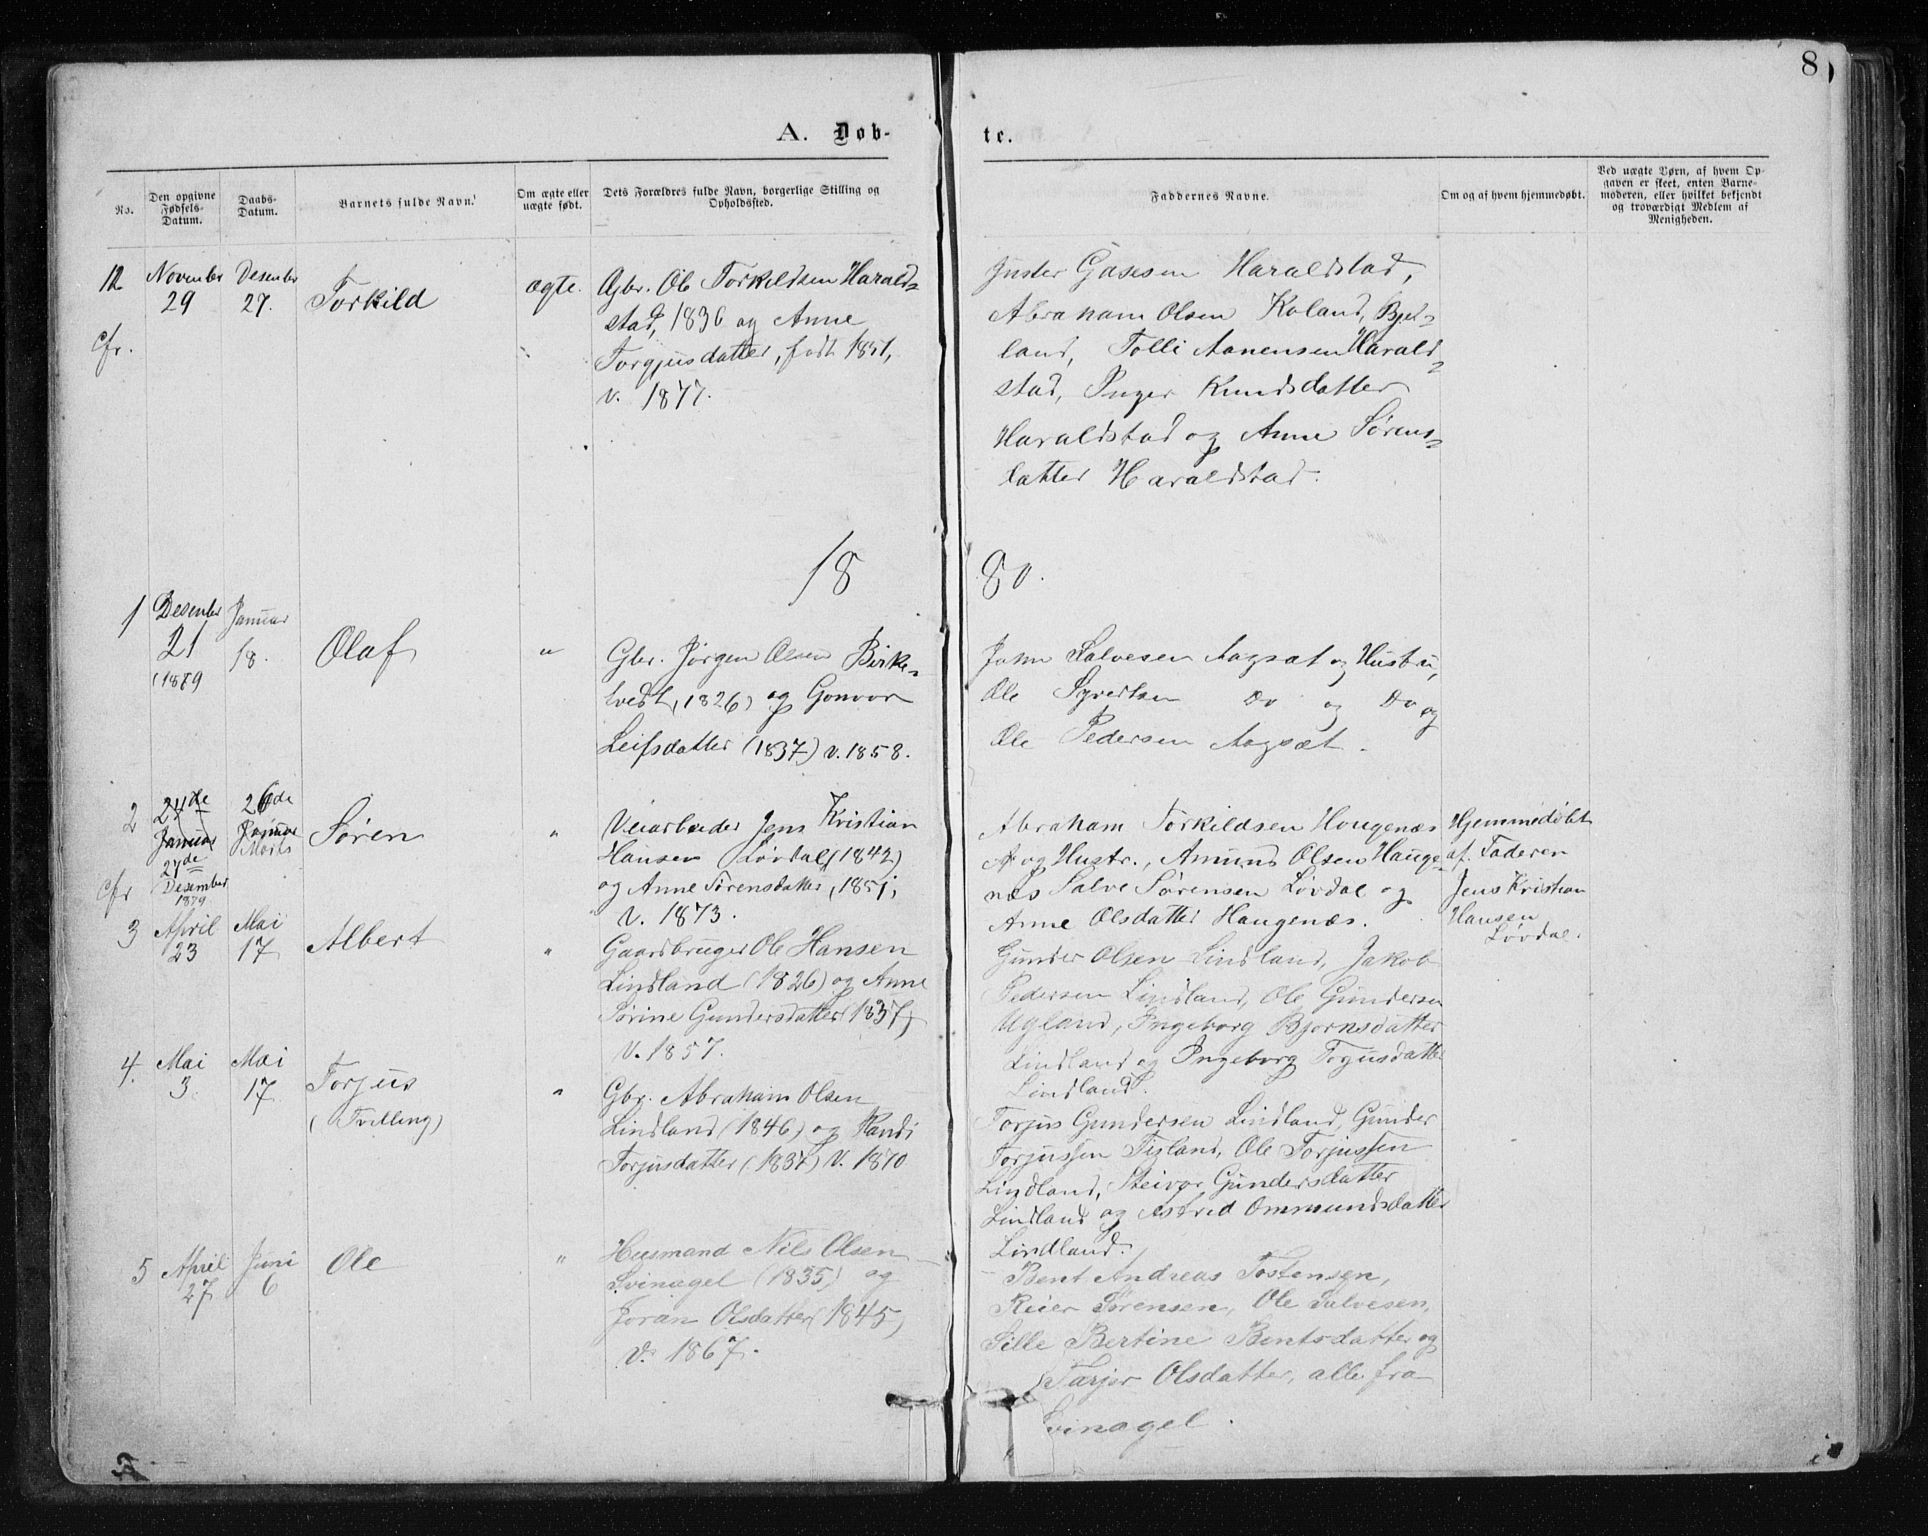 8
A. Døb-
te.
No.
Den opgivne Fødsels-Datum.
Daabs-Datum.
Barnets fulde Navn.
Om ægte eller uægte født.
Dets Forældres fulde Navn, borgerlige Stilling og Opholdssted.
Faddernes Navne.
Om og af hvem hjemmedøbt.
Ved uægte Børn, af hvem Op-
gaven er skeet, enten Barne-
moderen, eller hvilket bekjendt
og troværdigt Medlem af
Menigheden.
12
November
29
Desember
27.
Torkild
ægte.
Gbr. Ole Torkildsen Harald-
stad, 1836 og Anne
Torgjusdatter, født 1851,
v. 1877.
cfr.
Haraldstad,
Abraham Olsen Roland, Bjel-
land, Tolli Aanensen Harald-
stad, Inger Knudsdatter
Haraldstad og Anne Sørens-
datter Haraldstad.
18
80.
1
Desember
21
(1879
Januar
18.
Olaf
"
Gbr. Jørgen Olsen Birke-
tvedt, (1826) og Gonvor
Leifsdatter (1837) v. 1858.
John Salvesen Aagsæt og Hustru,
Ole Syvertsen Do og Do og
Ole Pedersen Aagsæt.
2
24de
Januar
27de
Desember
1879
26de
Januar
Marts
Søren
"
cfr
Veiarbeider Jens Kristian
Hansen Løvdal (1842)
og Anne Sørensdatter, 1851,
v. 1873.
Abraham Torkildsen Hougenæs
og Hustr., Amund Olsen Hauge-
næs Salve Sørensen Løvdal og
Anne Olsdatter Haugenæs.
Hjemmedøbt
af Faderen
Jens Kristian
Hansen
Løvdal.
3
April
23
Mai
17
Albert
"
Gaardbruger Ole Hansen
Lindland (1826) og Anne
Sørine Gundersdatter (1837)
v. 1857.
Gunder Olsen Lindland, Jakob
Pedersen Lindland, Ole Gundersen
Ugland, Ingeborg Bjørnsdatter
Lindland og Ingeborg Torjusdatter
Lindland.
4.
Mai
3
Mai
17
Torjus
(Tvilling)
"
Gbr. Abraham Olsen
Lindland (1846) og Randi
Torjusdatter (1837) v. 1870
Torjus Gundersen Lindland, Gunder
Torjussen Ole Torjussen
Lindland, Steivor Gundersdatter
Lindland og Astrid Ommundsdatter
Lindland.
5
April
27
Juni
6
Ole
"
Husmand Nils Olsen
Svinagel (1835) og
Joran Olsdatter (1845)
v. 1867.
Bent Andreas Tostensen,
Reier Sørensen, Ole Salvesen,
Sille Bertine Bentsdatter og
Tarjer Olsdatter, alle fra
Svinagel.